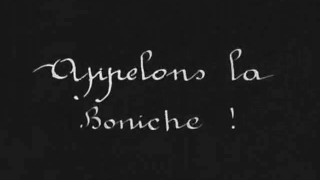 Appelons la
Boniche !